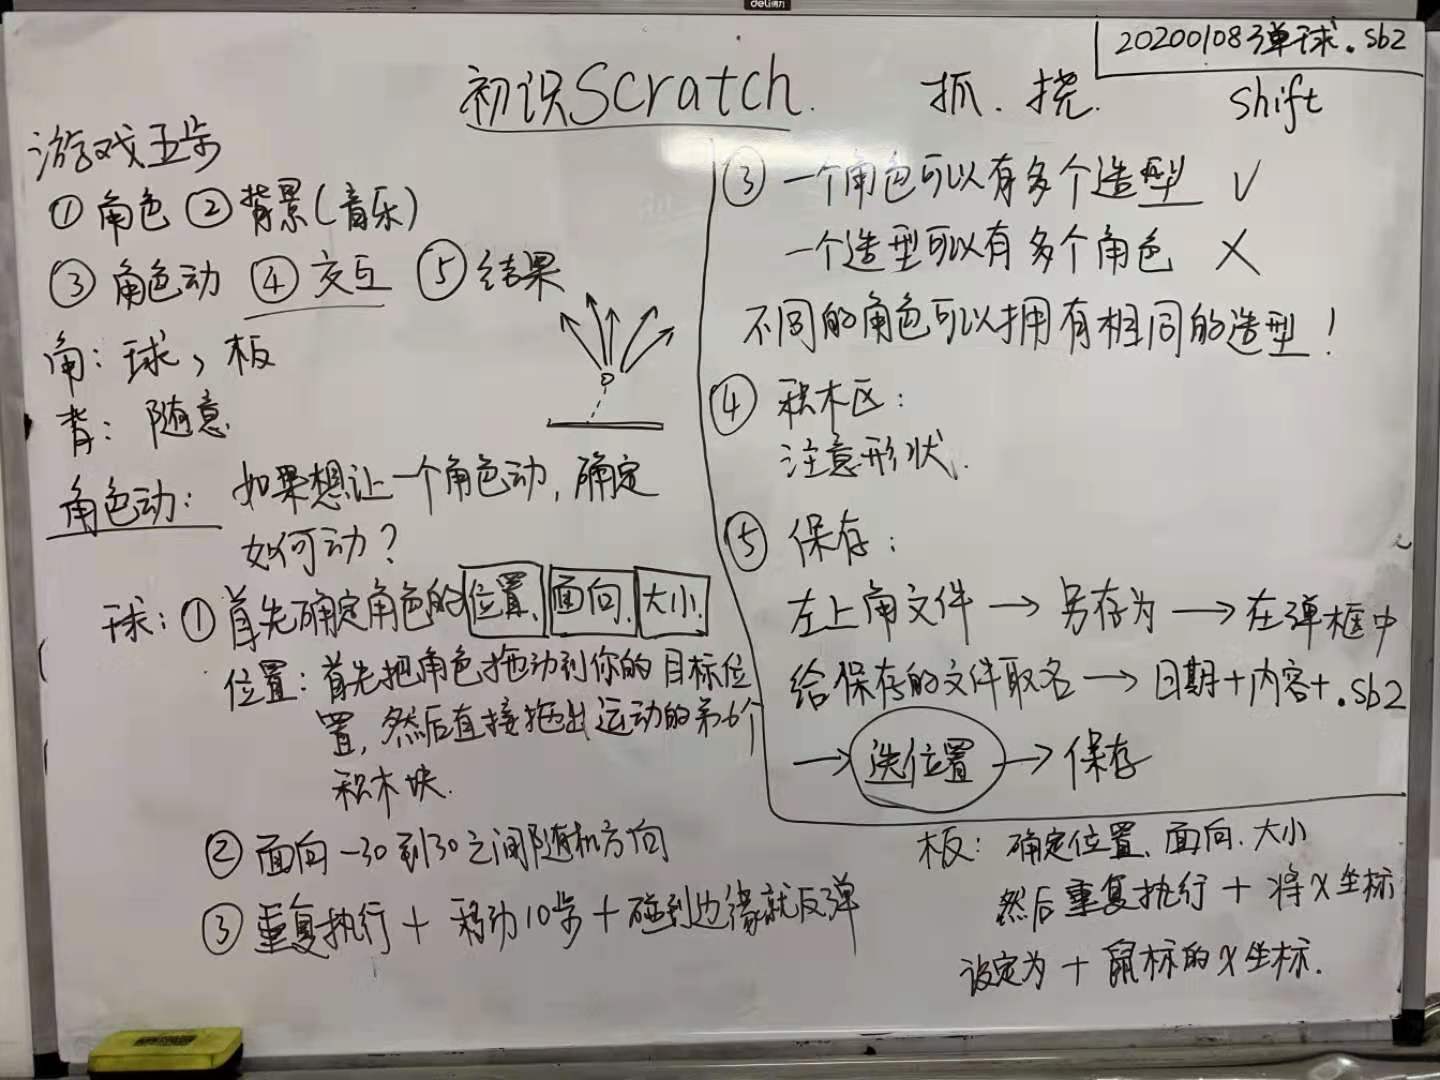 deli得力
20200108弹球.sb2
初识Scratch. 抓.挠. shift
游戏五步
①角色 ②背景(音乐)
③角色动 ④交互 ⑤结果
角：球，板
背：随意
角色动：如果想让一个角色动，确定
如何动？
球：①首先确定角色的位置、面向、大小.
位置：首先把角色拖动到你的目标位
置，然后直接拖出运动的第6个
积木块.
②面向-30到30之间随机方向
③重复执行+移动10步+碰到边缘就反弹
③一个角色可以有多个造型 √
一个造型可以有多个角色 ×
不同的角色可以拥有相同的造型！
④积木区：
注意形状.
⑤保存：
左上角文件→另存为→在弹框中
给保存的文件取名→日期+内容+.sb2
→选位置→保存
板：确定位置、面向.大小
然后重复执行+将x坐标
设定为+鼠标的x坐标.